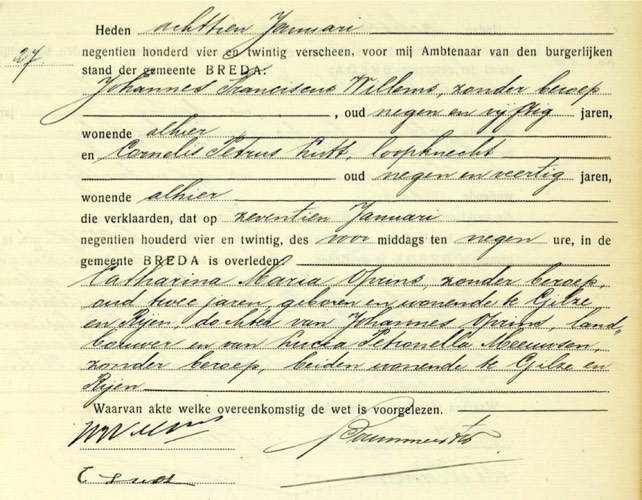 27.
Heden achttien Januari
negentien honderd vier en twintig verscheen, voor mij Ambtenaar van den burgerlijken
stand der gemeente BREDA:
Johannes Franciscus Willems, zonder beroep
, oud negen en vijftig jaren,
wonende alhier
en Cornelis Petrus Lutt, loopknecht
oud negen en veertig jaren,
wonende alhier
die verklaarden, dat op zeventien Januari
negentien houderd vier en twintig, des voor middags ten negen ure, in de
gemeente BREDA is overleden:
Catharina Maria Oprins, zonder beroep,
oud twee jaren, geboren en wonende te Gilze
en Rijen, dochter van Johannes Oprins, land-
bouwer en van Lucia Petronella Meeuwsen,
zonder beroep, beiden wonende te Gilze en
Rijen
Waarvan akte welke overeenkomstig de wet is voorgelezen.